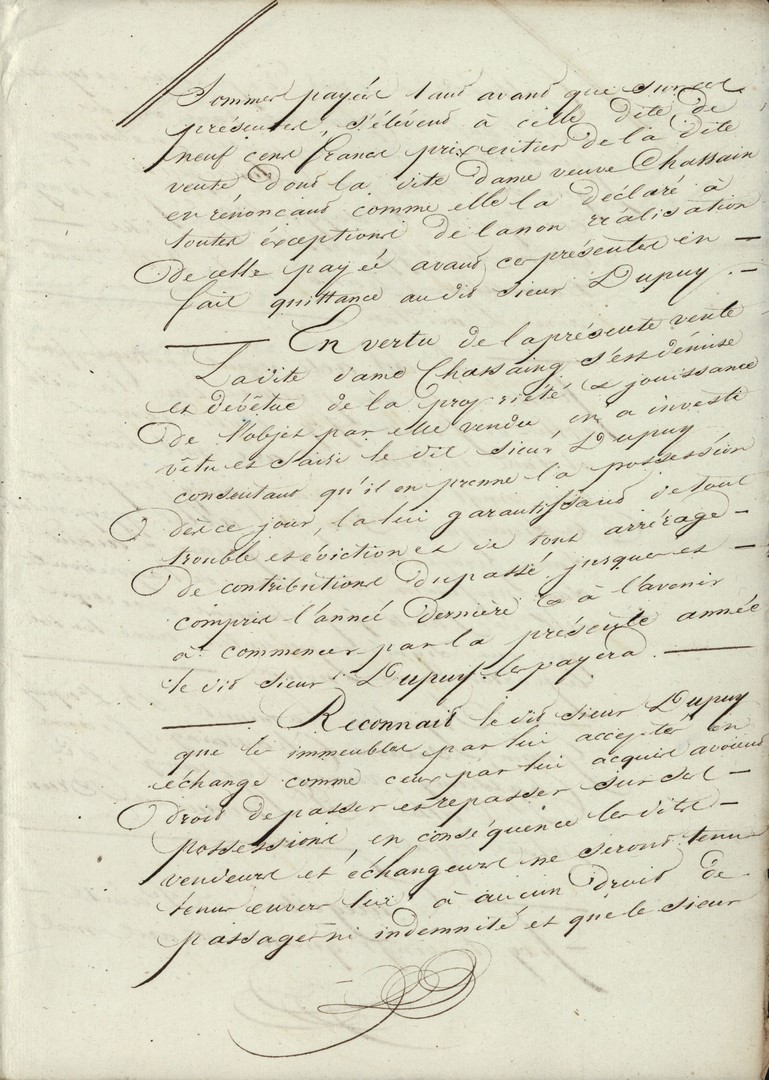 Sommes payées tans avans que sur ces
présentes, s'élévens à celle dite de
neuf cens francs prix entier de la dite
vente Dons la dite Dame veuve Chassain
en rénoncans comme elle la déclaré à
toutes éxceptions de la non réalisation
De celle payéé avans ces présentes en —
fait quittance au dis Sieur Dupuy. —
— En vertu de la présente vente
La dite dame Chassaing s'est démise
et dévêtue de la propriété & jouissance
De l'objet par elle vendu, en a investi
vêtu et saisi le dit sieur Dupuy
consentans qu'il en prenne la possession
Dès ce jour, la lui garantissans de tout
trouble et éviction et de tous arrérage —
De contributions du passé jusques et —
compris l'annéé Dernière & à l'avenir
à commencer par la présente année
le dis sieur Dupuy les payera. —
— Reconnais le dis sieur Dupuy
que les immeubles par lui accepté en
échange comme ceux par lui acquis avoiens
Drois de passer et repasser sur ses —
possessions, en conséquence les dits —
vendeurs et échangeurs ne serons tenu
tenus envers lui à aucun Drois de
passages ni indemnité et que le sieur